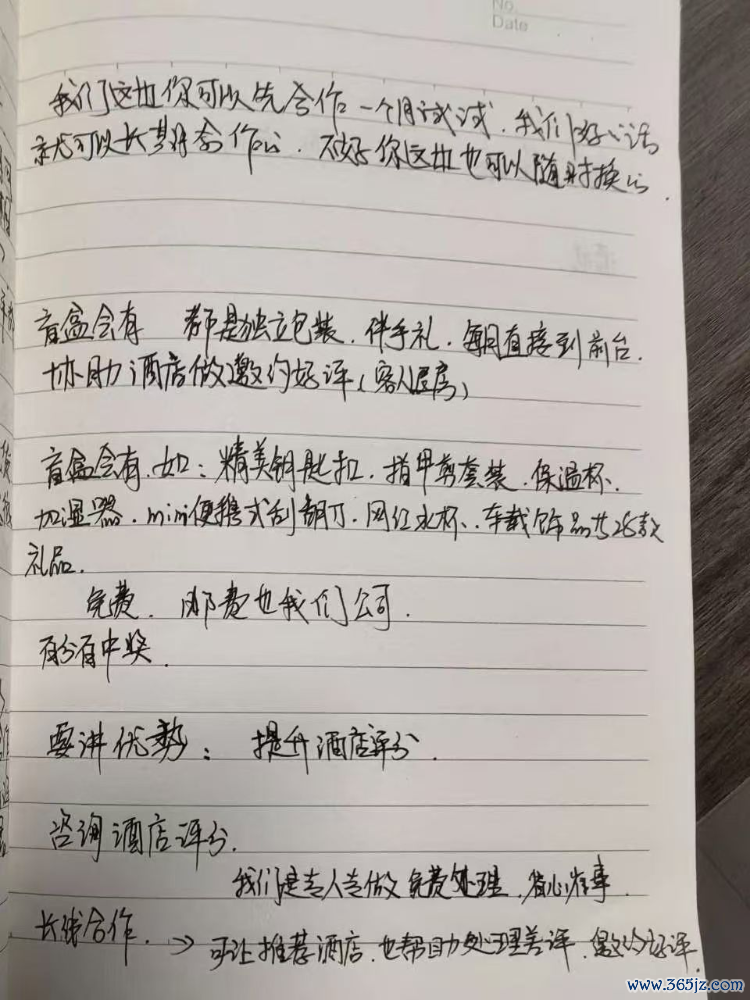 No.
Date
我们这边你可以先合作一个月试试,我们好的话
就可以长期合作的.不好你这边也可以随时换的.
盲盒会有 都是独立包装.伴手礼.每月直接到前台.
协助酒店做邀约好评(客人居房)
盲盒会有.如:精美钥匙扣.指甲剪套装.保温杯、
加湿器.mini便携式刮胡刀.网红水杯、车载饰品共28款
礼品.
免费.邮费也我们公司.
百分百中奖.
要讲优势: 提升酒店评分.
咨询酒店评分.
我们是专人专做免费处理.省心省事.
长线合作. → 可让推荐酒店.也帮助处理差评.邀约好评.
www.365jz.com